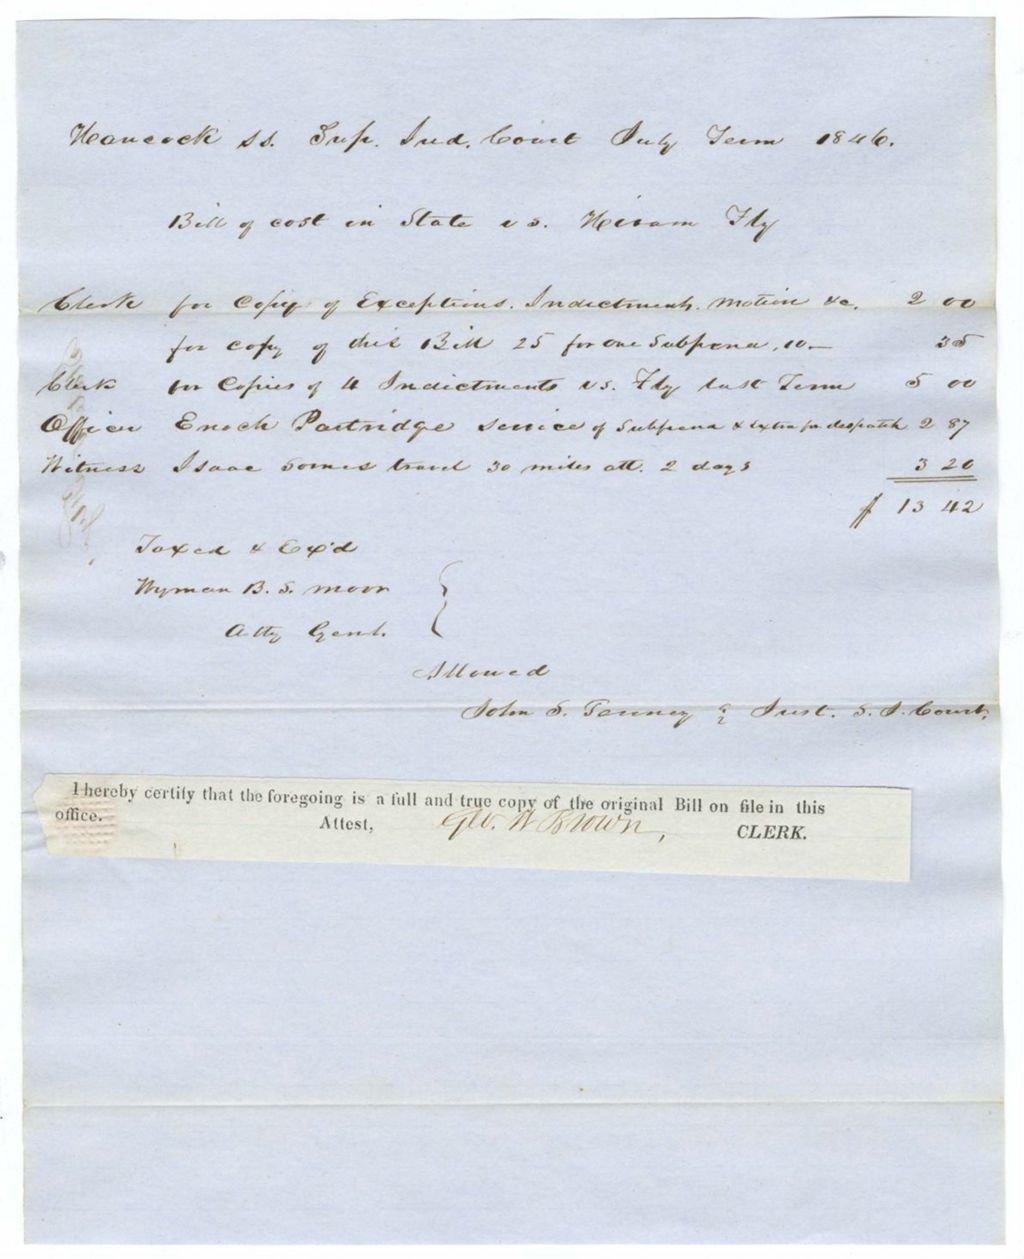 Hancock ss. Sup. Jud. Court July Term 1846.
Bill of cost in State vs. Hiram Fly
Clerk for Copy of Exceptions. Indictment. Motion &c. 2 00
for copy of this Bill 25 for one Subpena, 10 — 35
Clerk for Copies of 4 Indictments vs. Fly last Term 5 00
Officer Enoch Partridge service of Subpena & extra for despatch 2 87
Witness Isaac Somes travel 30 miles att. 2 days 3 20
$ 13 42
Taxed & Ex'd
Wyman B. S. Moor
Atty Genl.
Allowed
John S. Tenney Just. S. J. Court.
I hereby certify that the foregoing is a full and true copy of the original Bill on file in this
office. Attest, Geo. W Brown, CLERK.